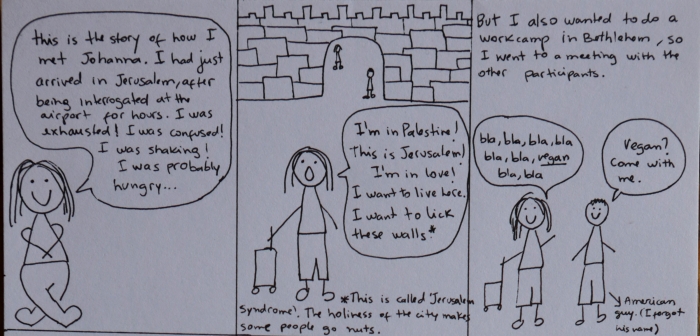 this is the story of how I
met Johanna. I had just
arrived in Jerusalem, after
being interrogated at the
airport for hours. I was
exhausted! I was confused!
I was shaking!
I was probably
hungry...
I'm in Palestine!
This is Jerusalem!
I'm in love!
I want to live here.
I want to lick
these walls*
*This is called Jerusalem
syndrome). The holiness of the city makes
some people go nuts.
But I also wanted to do a
workcamp in Bethlehem, so
I went to a meeting with the
other participants.
bla, bla, bla, bla
bla, bla, vegan
bla, bla
Vegan?
Come with
me.
American
guy. (I forgot
his name)